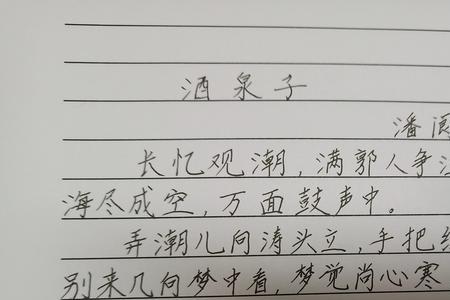 酒泉子
潘阆
长忆观潮,满郭人争
海尽成空,万面鼓声中。
弄潮儿向涛头立,手把
别来几向梦中看,梦觉尚心寒